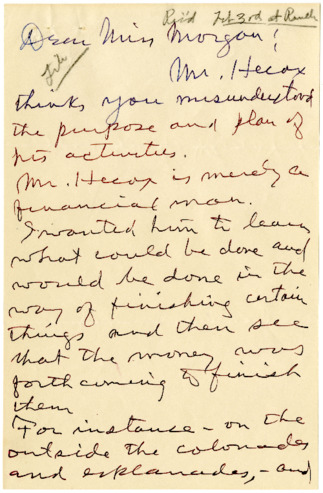 Rec'd Feb 3rd at Ranch
Dear Miss Morgan!
Mr. Hecox
thinks you misunderstood
the purpose and plan of
his activities.
Mr. Hecox is merely a
financial man.
I wanted him to learn
what could be done and
would be done in the
way of finishing certain
things and then see
that the money was
forthcoming to finish
them
For instance - on the
outside the colonades
and esplanades, - and